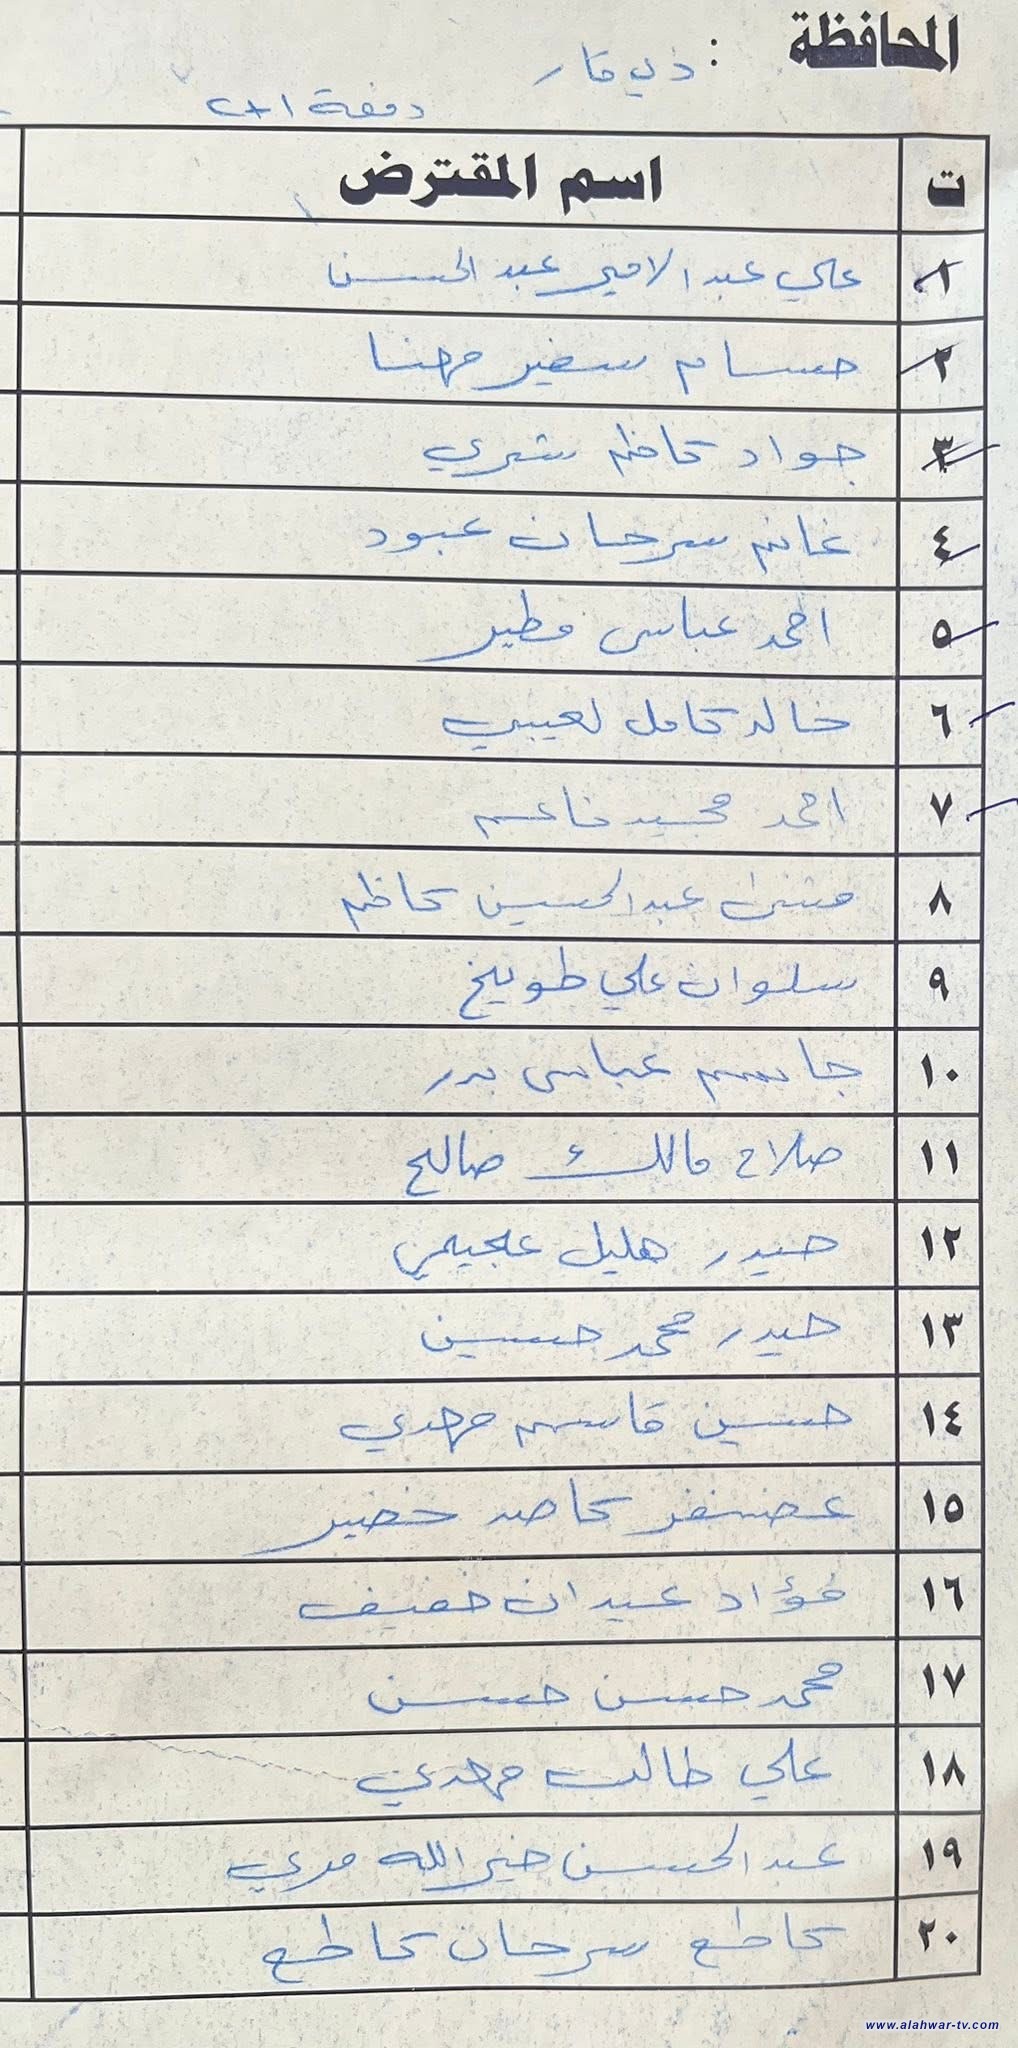 المحافظة : ذي قار
دفعة ١+٢
ت اسم المقترض
١ علي عبد الامير عبد الحسن
٢ حسام سفير مهنا
٣ جواد كاظم شري
٤ غانم سرحان عبود
٥ احمد عباس مطير
٦ خالد كامل لعيبي
٧ احمد مجيد
٨ مثنى عبد الحسين كاظم
٩ سلوان علي طويخ
١٠ جاسم عباس بدر
١١ صلاح مالك صالح
١٢ حيدر هليل
١٣ حيدر محمد حسين
١٤ حسين قاسم مهدي
١٥ غضنفر كاصد خضير
١٦ فؤاد عيدان خفيف
١٧ محمد حسن حسن
١٨ علي طالب مهدي
١٩ عبد الحسن خير الله مري
٢٠ كاطع سرحان كاطع
www.alahwar-tv.com